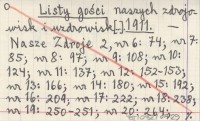 Listy gości naszych zdrojo-
wisk i uzdrowisk[.] 1911. —
Nasze Zdroje 2, nr 6: 74; nr 7:
85; nr 8: 97; nr 9: 108; nr 10:
124; nr 11: 137; nr 12: 152-153;
nr 13: 166; nr 14: 180; nr 15: 192;
nr 16: 209; nr 17: 222; nr 18: 238;
nr 19: 250-251; nr 20: 264;